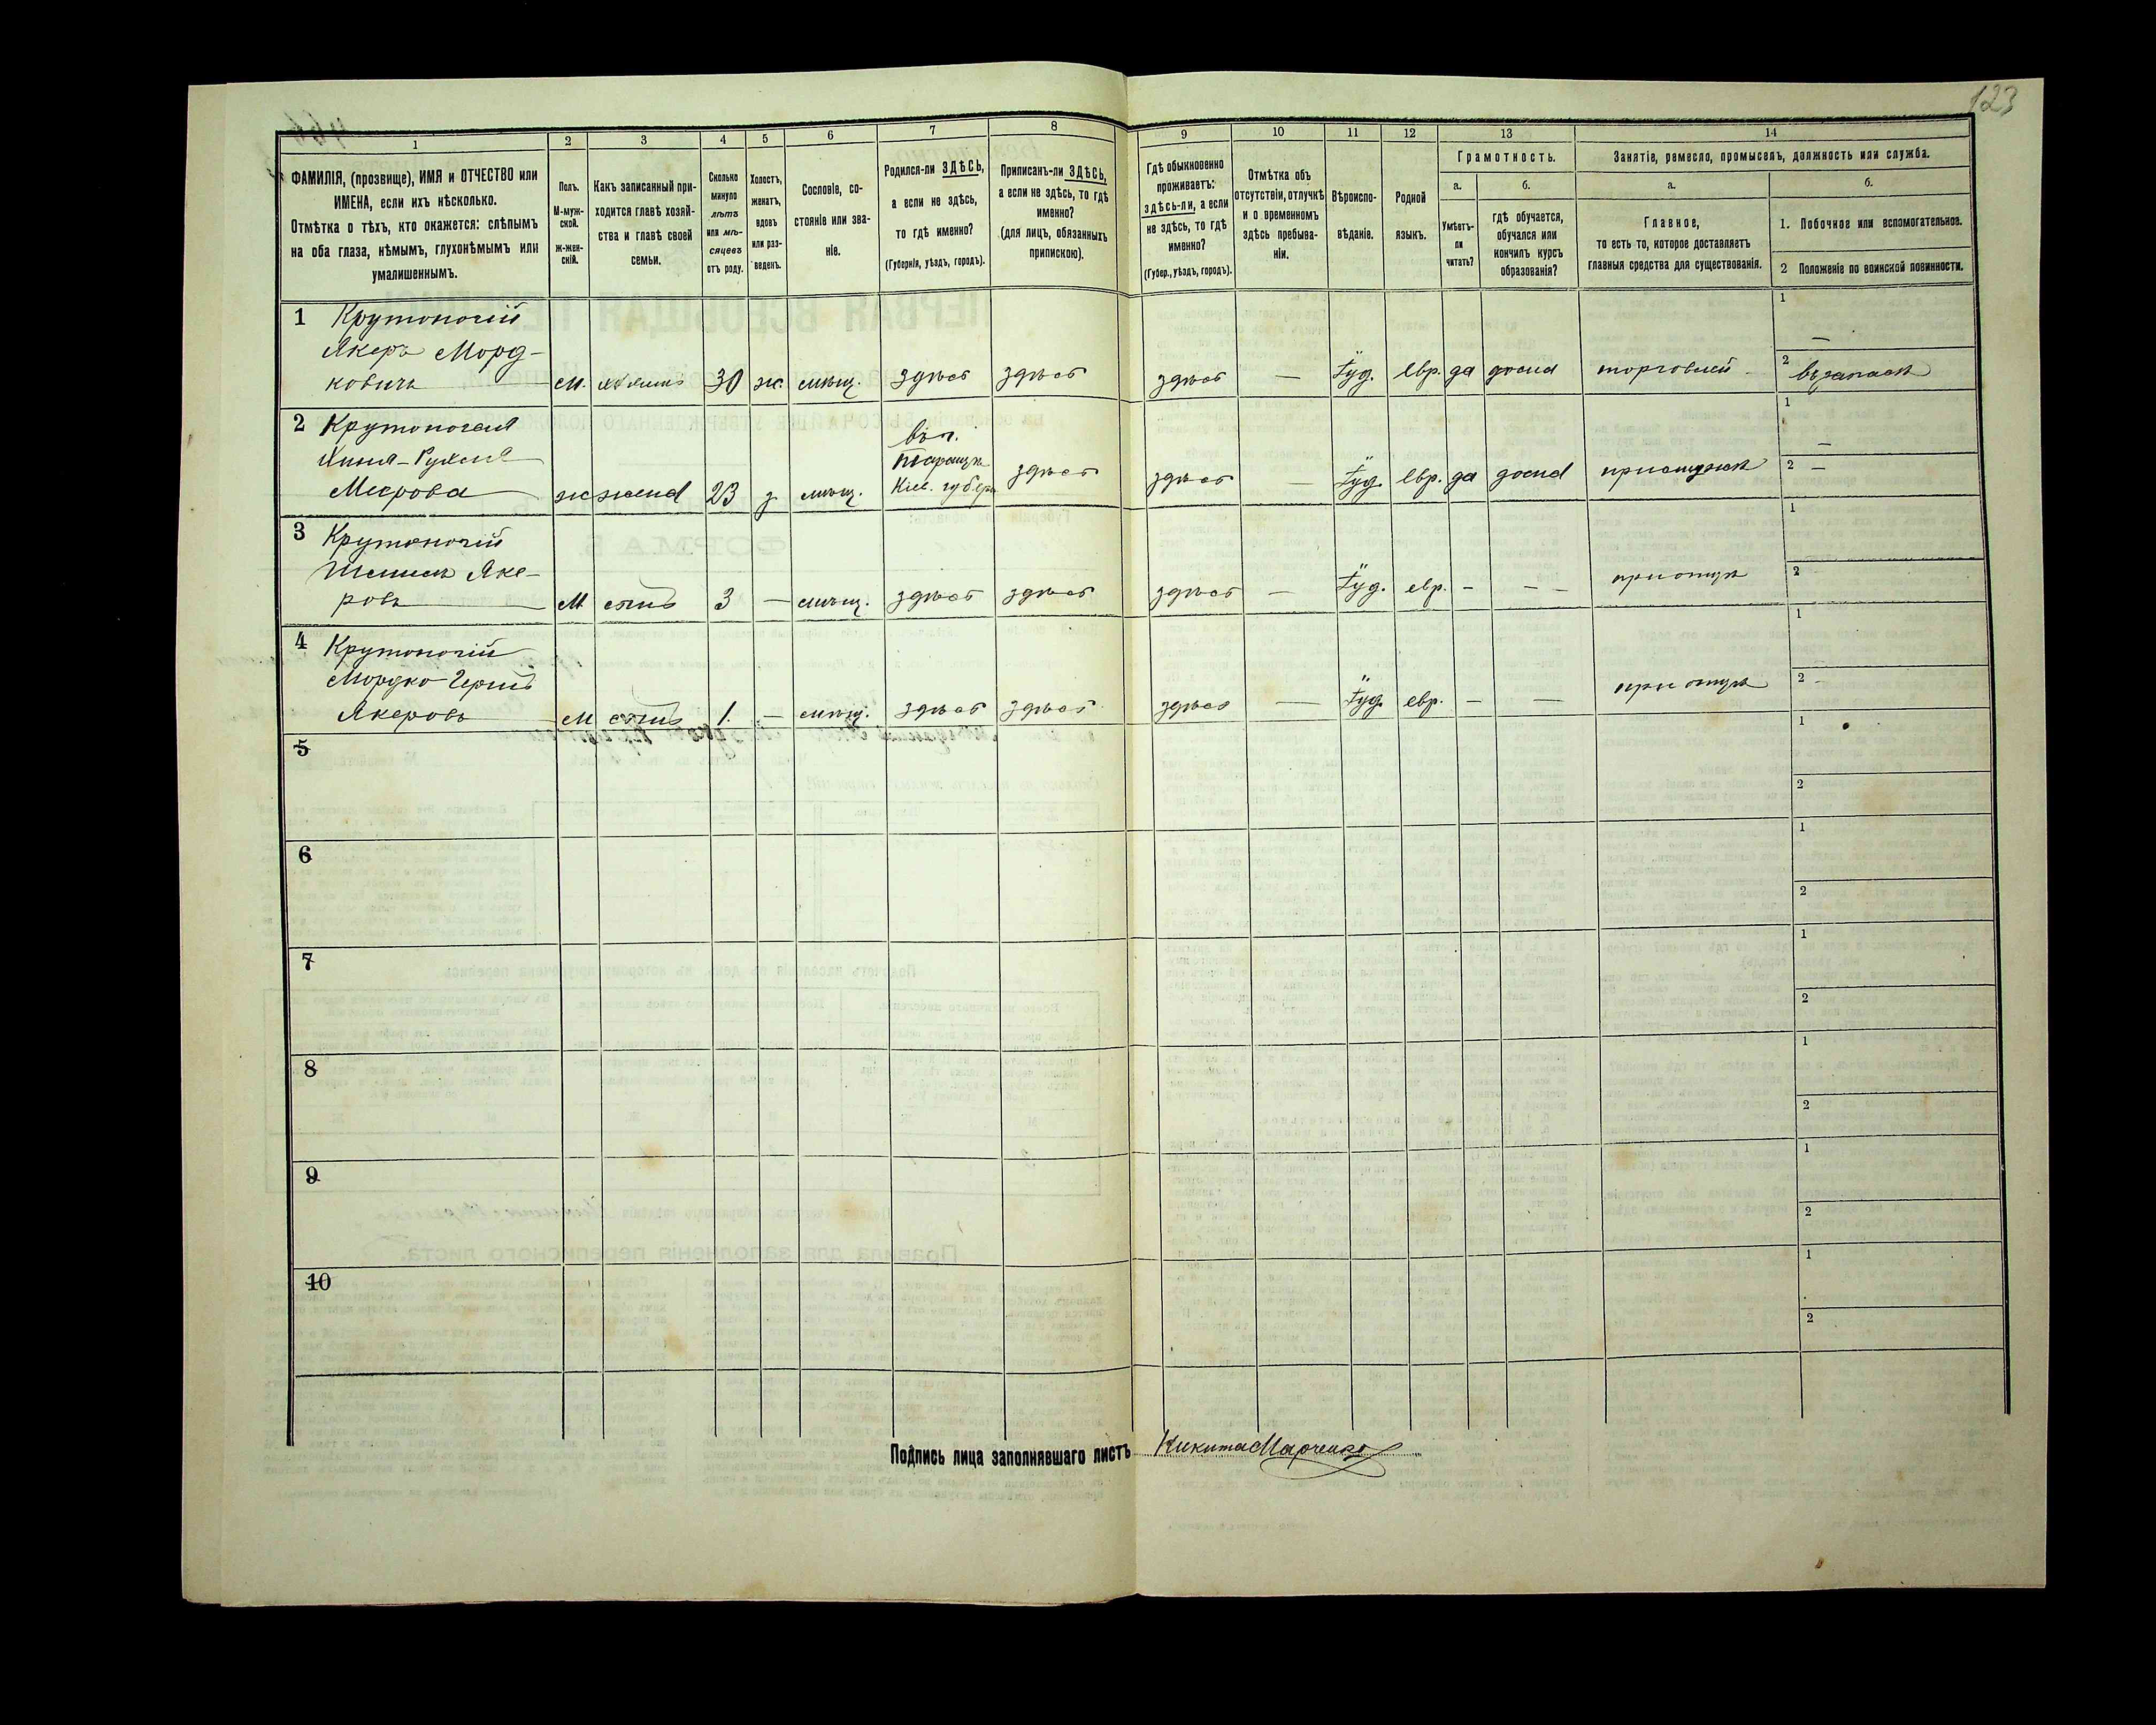 123
1
2
3
4
5
6
7
8
9
10
11
12
13
14
ФАМИЛІЯ, (прозвище), ИМЯ и ОТЧЕСТВО или
ИМЕНА, если ихъ нѣсколько.
Отмѣтка о тѣхъ, кто окажется: слѣпымъ
на оба глаза, нѣмымъ, глухонѣмымъ или
умалишеннымъ.
Полъ.
М-муж-
ской.
ж-жен-
скій.
Какъ записанный при-
ходится главѣ хозяй-
ства и главѣ своей
семьи.
Сколько
минуло
лѣтъ
или мѣ-
сяцевъ
отъ роду.
Холостъ,
женатъ,
вдовъ
или раз-
веденъ.
Сословіе, со-
стояніе или зва-
ніе.
Родился-ли ЗДѢСЬ,
а если не здѣсь,
то гдѣ именно?
(Губернія, уѣздъ, городъ).
Приписанъ-ли ЗДѢСЬ,
а если не здѣсь, то гдѣ
именно?
(для лицъ, обязанныхъ
припискою).
Гдѣ обыкновенно
проживаетъ:
здѣсь-ли, а если
не здѣсь, то гдѣ
именно?
(Губер., уѣздъ, городъ).
Отмѣтка объ
отсутствіи, отлучкѣ
и о временномъ
здѣсь пребыва-
ніи.
Вѣроиспо-
вѣданіе.
Родной
языкъ.
Грамотность.
а.
Умѣетъ-
ли
читать?
б.
гдѣ обучается,
обучался или
кончилъ курсъ
образованія?
Занятіе, ремесло, промыселъ, должность или служба.
а.
Главное,
то есть то, которое доставляетъ
главныя средства для существованія.
б.
1. Побочное или вспомогательное.
2 Положеніе по воинской повинности.
1 Крутоногій
Якеръ Морд-
ковичъ — м. 30 ж. мѣщ. здѣсь здѣсь здѣсь — Іуд. евр. да дома торговлей
1 —
2 въ запасѣ
2 Крутоногая
Хиня-Рухля
Меерова — ж жена 23 з. мѣщ.
Кіев. губерн
здѣсь здѣсь — Іуд. евр. да дома при мужѣ
1 —
2 —
3 Крутоногій
Яке-
ровъ — М сынъ 3 — мѣщ. здѣсь здѣсь здѣсь — Іуд. евр. - - - при отцѣ
1
2
4 Крутоногій
Мордко-Гершъ
Якеровъ — М сынъ 1. — мѣщ. здѣсь здѣсь здѣсь — Іуд. евр. — — при отцѣ
1
2 -
5
1
2
6
1
2
7
1
2
8
1
2
9
1
2
10
1
2
Подпись лица заполнявшаго листъ Никита Марченко